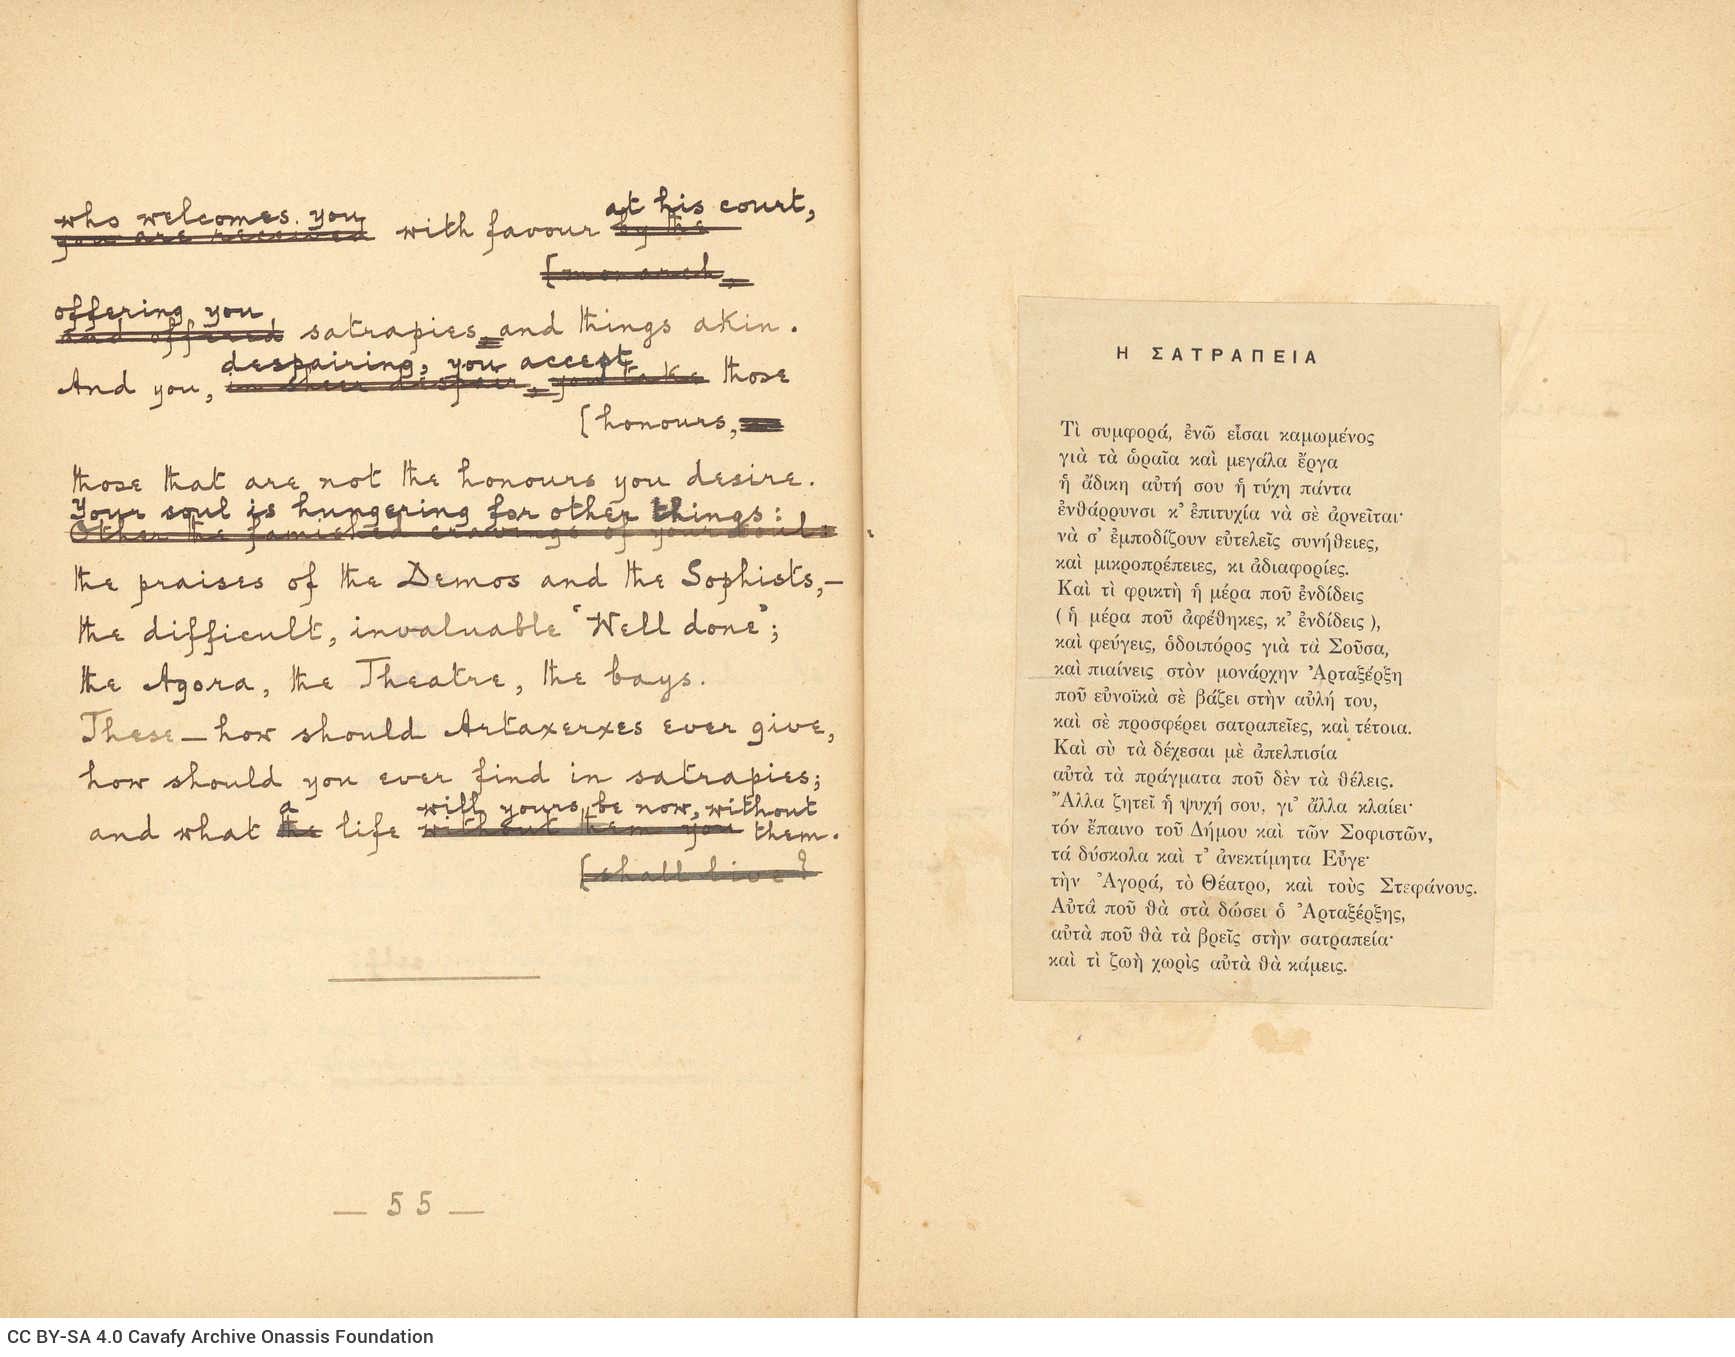 who welcomes you at his court,
you are received with favour by the
[monarch,
offering you
and offered satrapies, and things akin.
despairing, you accept
And you, in sheer despair, you take those
[honours,
those that are not the honours you desire.
Your soul is hungering for other things:
Other the famished cravings of your soul:
the praises of the Demos and the Sophists,—
the difficult, invaluable 'Well done';
the Agora, the Theatre, the bays.
These—how should Artaxerxes ever give,
how should you ever find in satrapies;
a will yours be now, without
and what the life without them you them.
[shall live?
— 55 —
Η ΣΑΤΡΑΠΕΙΑ
Τὶ συμφορά, ἐνῶ εἶσαι καμωμένος
γιὰ τὰ ὡραῖα καὶ μεγάλα ἔργα
ἡ ἄδικη αὐτή σου ἡ τύχη πάντα
ἐνθάρρυνσι κ' ἐπιτυχία νὰ σὲ ἀρνεῖται·
νὰ σ' ἐμποδίζουν εὐτελεῖς συνήθειες,
καὶ μικροπρέπειες, κι ἀδιαφορίες.
Καὶ τὶ φρικτὴ ἡ μέρα ποῦ ἐνδίδεις
(ἡ μέρα ποῦ ἀφέθηκες, κ' ἐνδίδεις),
καὶ φεύγεις, ὁδοιπόρος γιὰ τὰ Σοῦσα,
καὶ πιαίνεις στὸν μονάρχην Ἀρταξέρξη
ποῦ εὐνοϊκὰ σὲ βάζει στὴν αὐλή του,
καὶ σὲ προσφέρει σατραπεῖες, καὶ τέτοια.
Καὶ σὺ τὰ δέχεσαι μὲ ἀπελπισία
αὐτὰ τὰ πράγματα ποῦ δὲν τὰ θέλεις.
Ἄλλα ζητεῖ ἡ ψυχή σου, γι' ἄλλα κλαίει·
τόν ἔπαινο τοῦ Δήμου καὶ τῶν Σοφιστῶν,
τά δύσκολα καὶ τ' ἀνεκτίμητα Εὖγε·
τὴν Ἀγορά, τὸ Θέατρο, καὶ τοὺς Στεφάνους.
Αὐτὰ ποῦ θὰ στὰ δώσει ὁ Ἀρταξέρξης,
αὐτὰ ποῦ θὰ τὰ βρεῖς στὴν σατραπεία·
καὶ τὶ ζωὴ χωρὶς αὐτὰ θὰ κάμεις.
CC BY-SA 4.0 Cavafy Archive Onassis Foundation